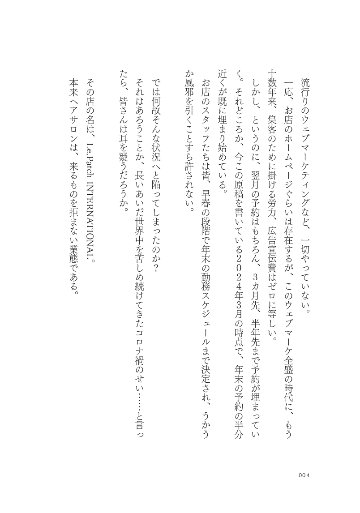 流行りのウェブマーケティングなど、一切やっていない。
一応、お店のホームページぐらいは存在するが、このウェブマーケ全盛の時代に、もう
十数年来、集客のために掛ける労力、広告宣伝費はゼロに等しい。
しかし、というのに、翌月の予約はもちろん、3カ月先、半年先まで予約が埋まってい
く。それどころか、今この原稿を書いている2024年3月の時点で、年末の予約の半分
近くが既に埋まり始めている。
お店のスタッフたちは皆、早春の段階で年末の勤務スケジュールまで決定され、うかう
か風邪を引くことすら許されない。
では何故そんな状況へと陥ってしまったのか?
それはあろうことか、長いあいだ世界中を苦しめ続けてきたコロナ禍のせい……と言っ
たら、皆さんは耳を疑うだろうか。
その店の名は、Le.Patch INTERNATIONAL。
本来ヘアサロンは、来るものを拒まない業態である。
004